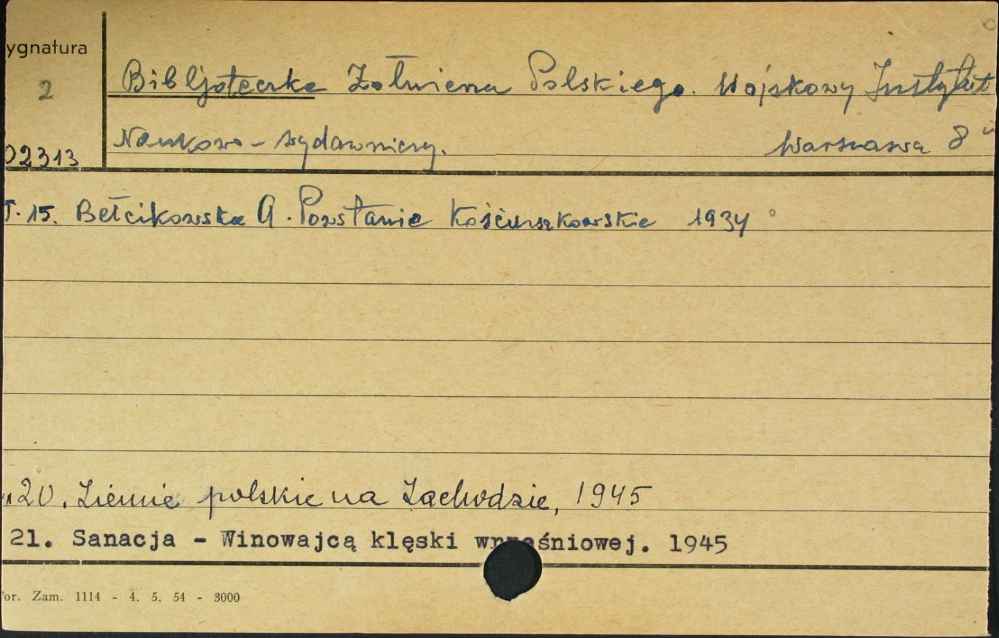 ygnatura
2
Bibljoteczka Żołnierza Polskiego. Wojskowy Instytut
02313 Naukowo-Wydawniczy. Warszawa 8°
T. 15. Bełcikowska A. Powstanie Kościuszkowskie 1934
20. Ziemie polskie na Zachodzie, 1945
21. Sanacja - Winowajcą klęski wrześniowej. 1945
or. Zam. 1114 - 4. 5. 54 - 3000